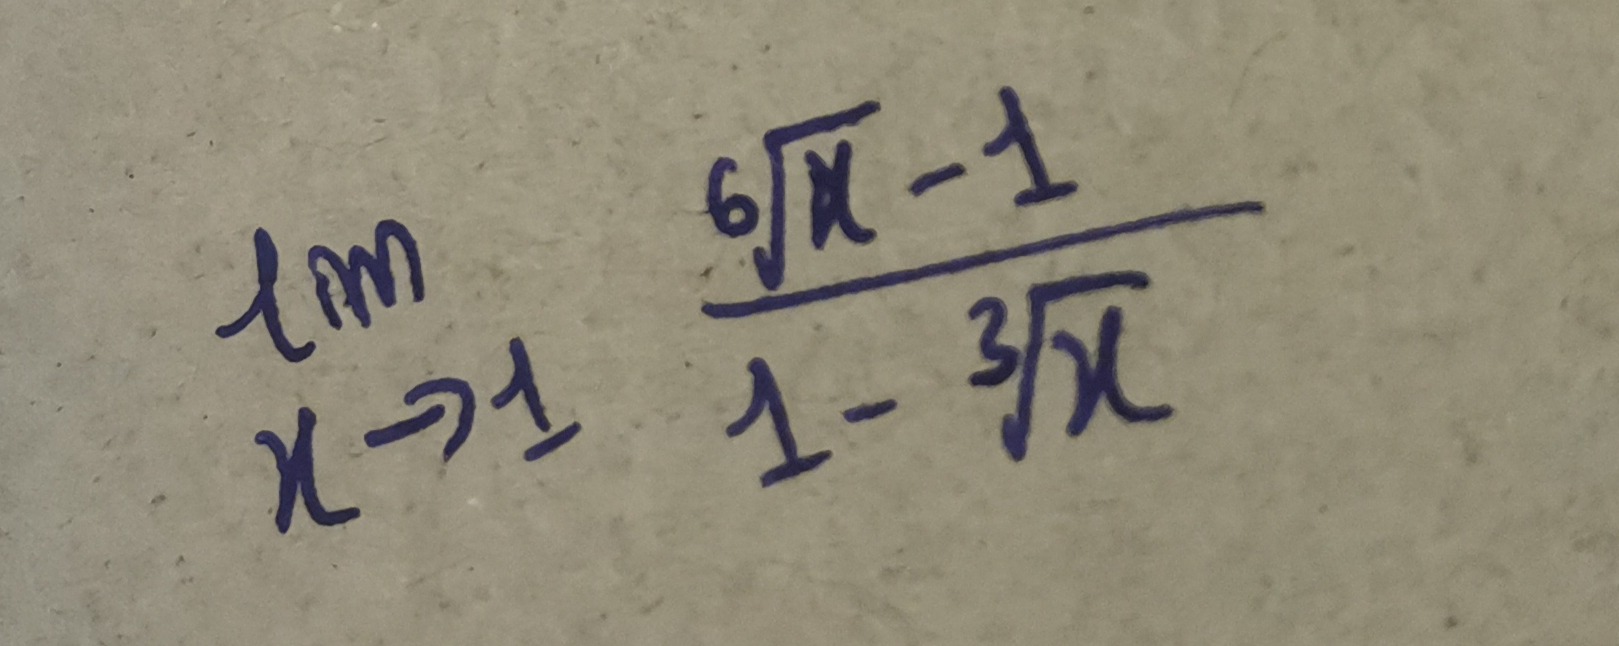 lim x→1 (⁶√x - 1) / (1 - ³√x)